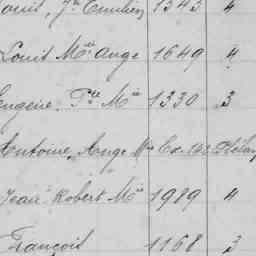 Louis, Jn Emilien 1343 4
Louis Mie Ange 1649 4
Eugène, Pre Mie 1330 3
Antoine, Ange Mie Ex. 142
Jean Robert Mie 1989 4
François 1168 3